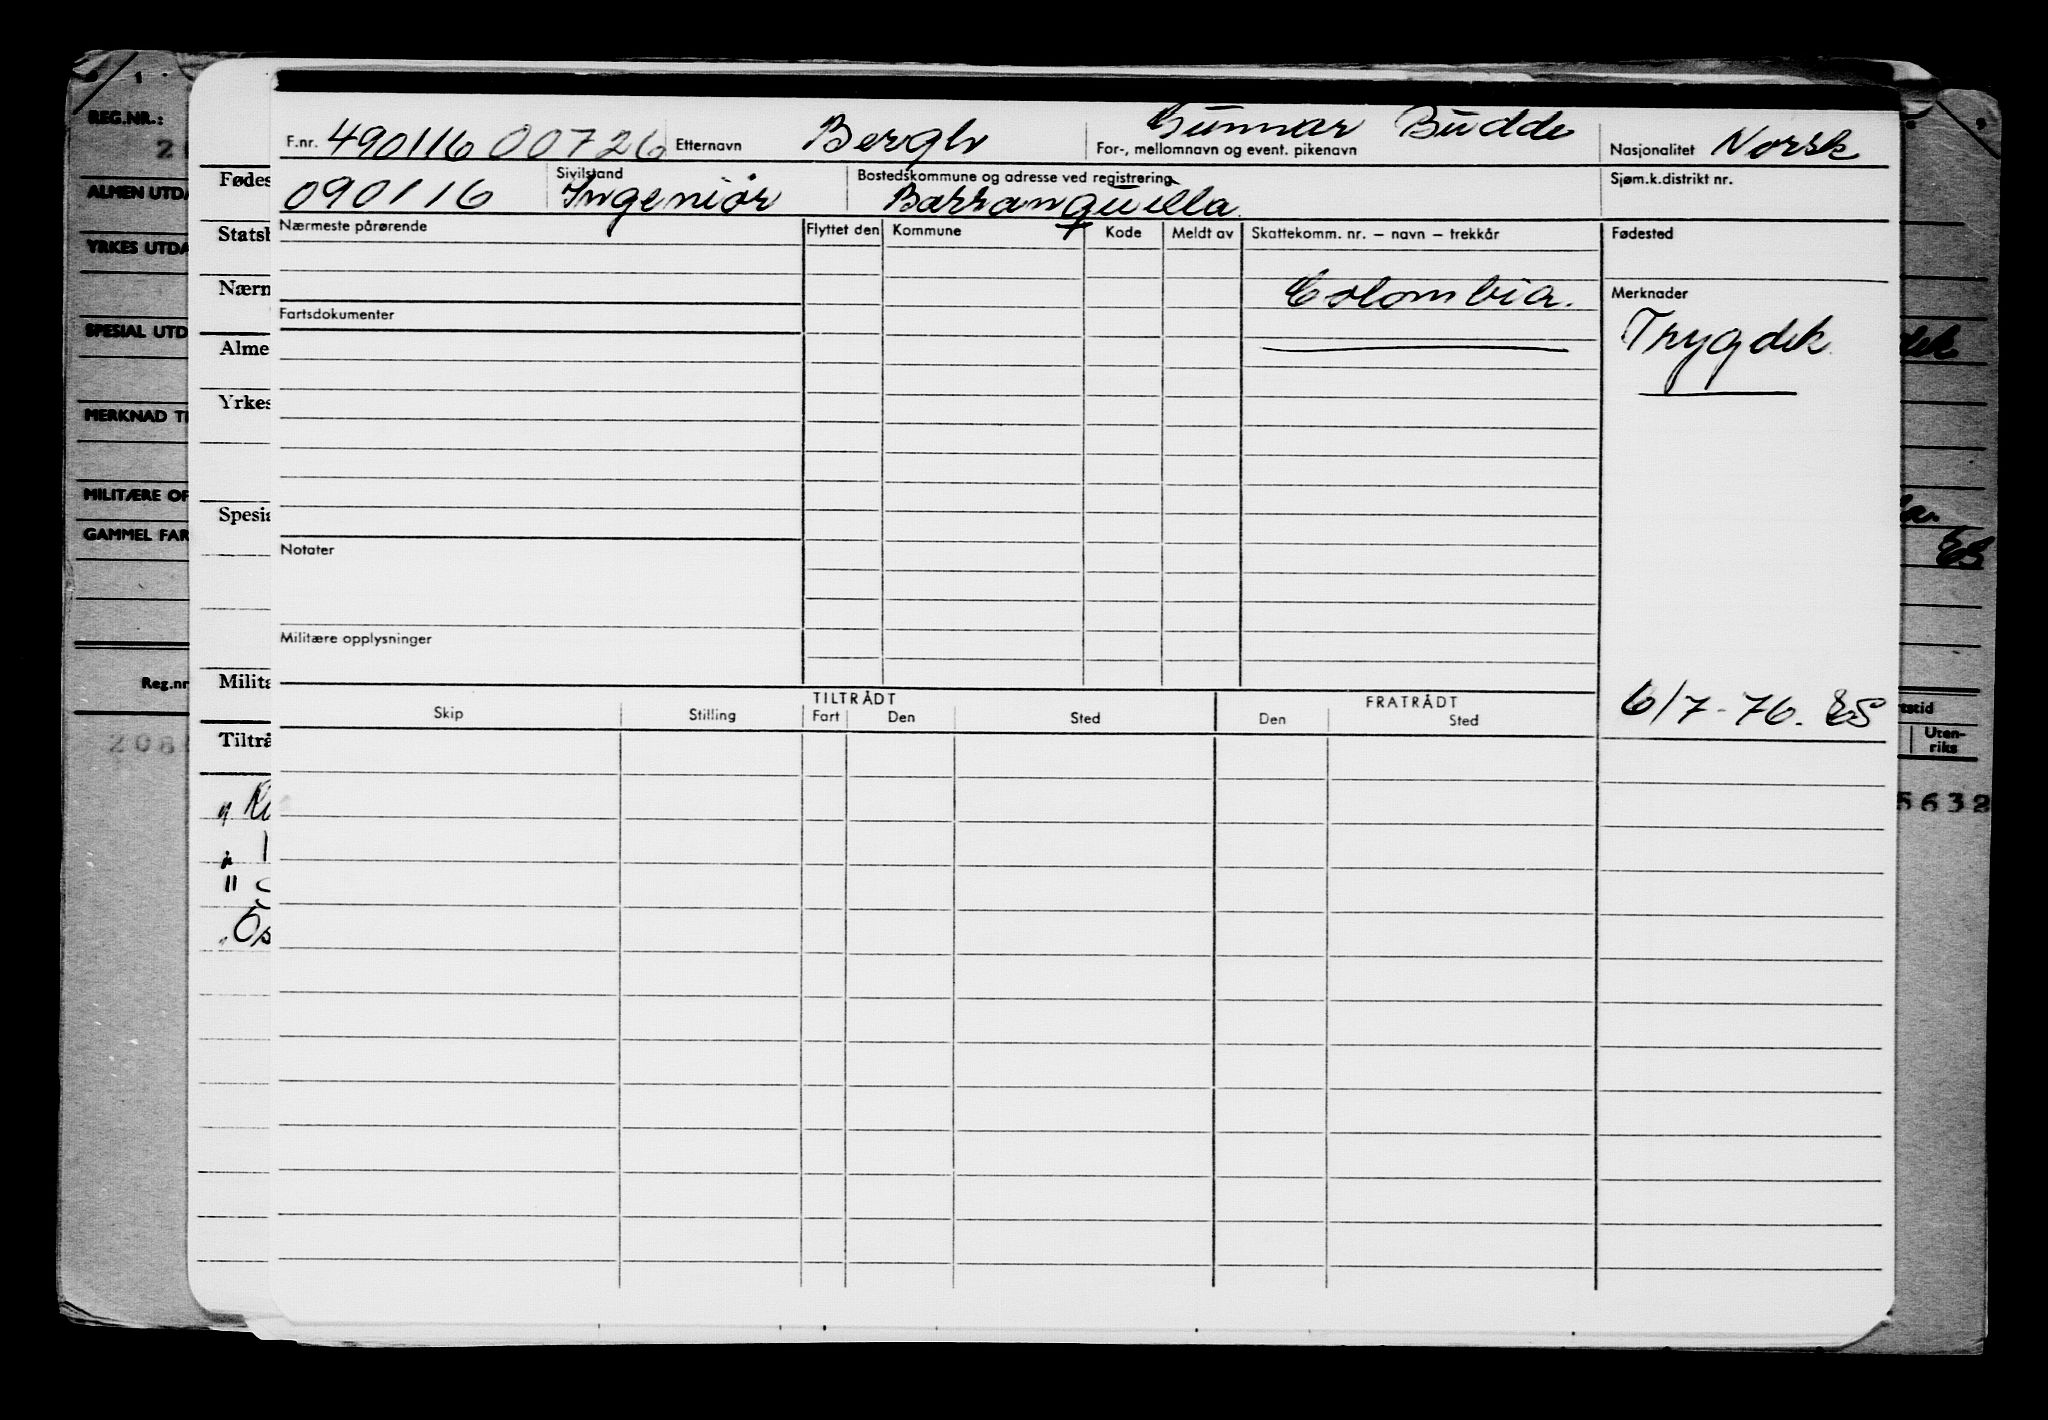 REG.NR.:
ALMEN UTDA
YRKES UTDA
SPESIAL UTD
MERKNAD TI
MILITÆRE OF
GAMMEL FAR
Reg.nr
208
Fødes
Statsb
Nærn
Alme
Yrkes
Spesia
Milita
Tiltrå
F.nr. 490116 00726 Etternavn Bergh Gunnar Budde
For-, mellomnavn og event. pikenavn Nasjonalitet Norsk
090116 Sivilstand Ingeniør Bostedskommune og adresse ved registrering Barranquilla Sjøm.k.distrikt nr.
Nærmeste pårørende Flyttet den Kommune Kode Meldt av Skattekomm. nr. – navn – trekkår Fødested
Colombia.
Merknader
Fartsdokumenter
Trygdek.
Notater
Militære opplysninger
TILTRÅDT FRATRÅDT
Skip Stilling Fart Den Sted Den Sted
6/7-76. ES
ES
tstid
Uten-
riks
5632